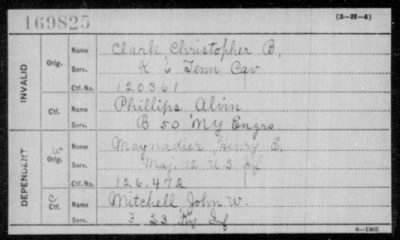 169825
(3-II-4)
INVALID
Orig.
Name Clark Christopher B.
Serv. K 6 Tenn Cav
Ctf. No. 120361
Ctf.
Name Phillips Alvin
Serv. B 50 NY Engrs
DEPENDENT
W
Orig.
Name Maynadier Henry E.
Serv. Maj. 12 U S Inf
Ctf. No. 126,472
C
Ctf.
Name Mitchell John W.
Serv. 23 Ky Inf